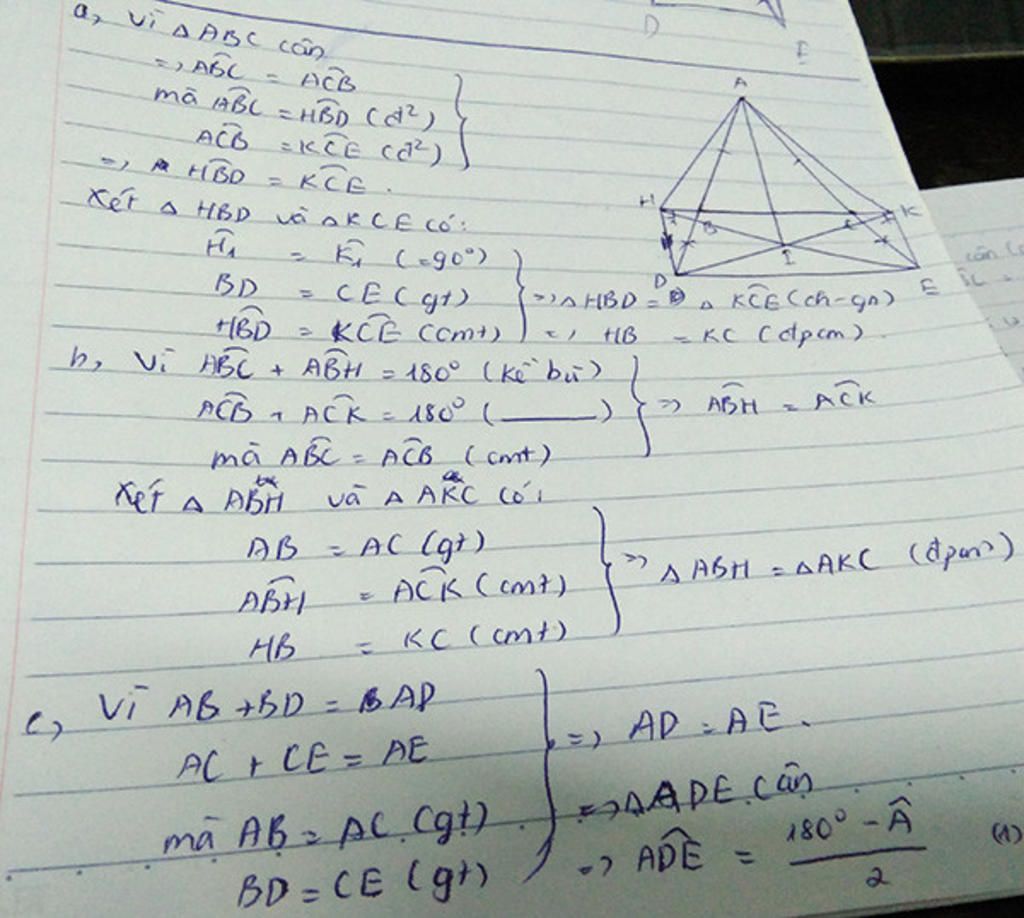 a, Vì △ABC cân
=> ABC^ = ACB^
mà ABC^ = HBD^ (đ²)
ACB^ = KCE^ (đ²)
=> HBD^ = KCE^.
Xét △HBD và △KCE có:
H₁^ = K₁^ (=90°)
BD = CE (gt)
HBD^ = KCE^ (cmt)
=> △HBD = △KCE (ch-gn)
=> HB = KC (đpcm).
b, Vì ABC^ + ABH^ = 180° (kề bù)
ACB^ + ACK^ = 180° (______)
mà ABC^ = ACB^ (cmt)
=> ABH^ = ACK^
Xét △ABH và △AKC có:
AB = AC (gt)
ABH^ = ACK^ (cmt)
HB = KC (cmt)
=> △ABH = △AKC (đpcm)
c, Vì AB + BD = AD
AC + CE = AE
mà AB = AC (gt)
BD = CE (gt)
=> AD = AE.
=> △ADE cân
=> ADE^ = (180° - A^)/2 (1)
D
E
A
H
B
C
K
I
D
E